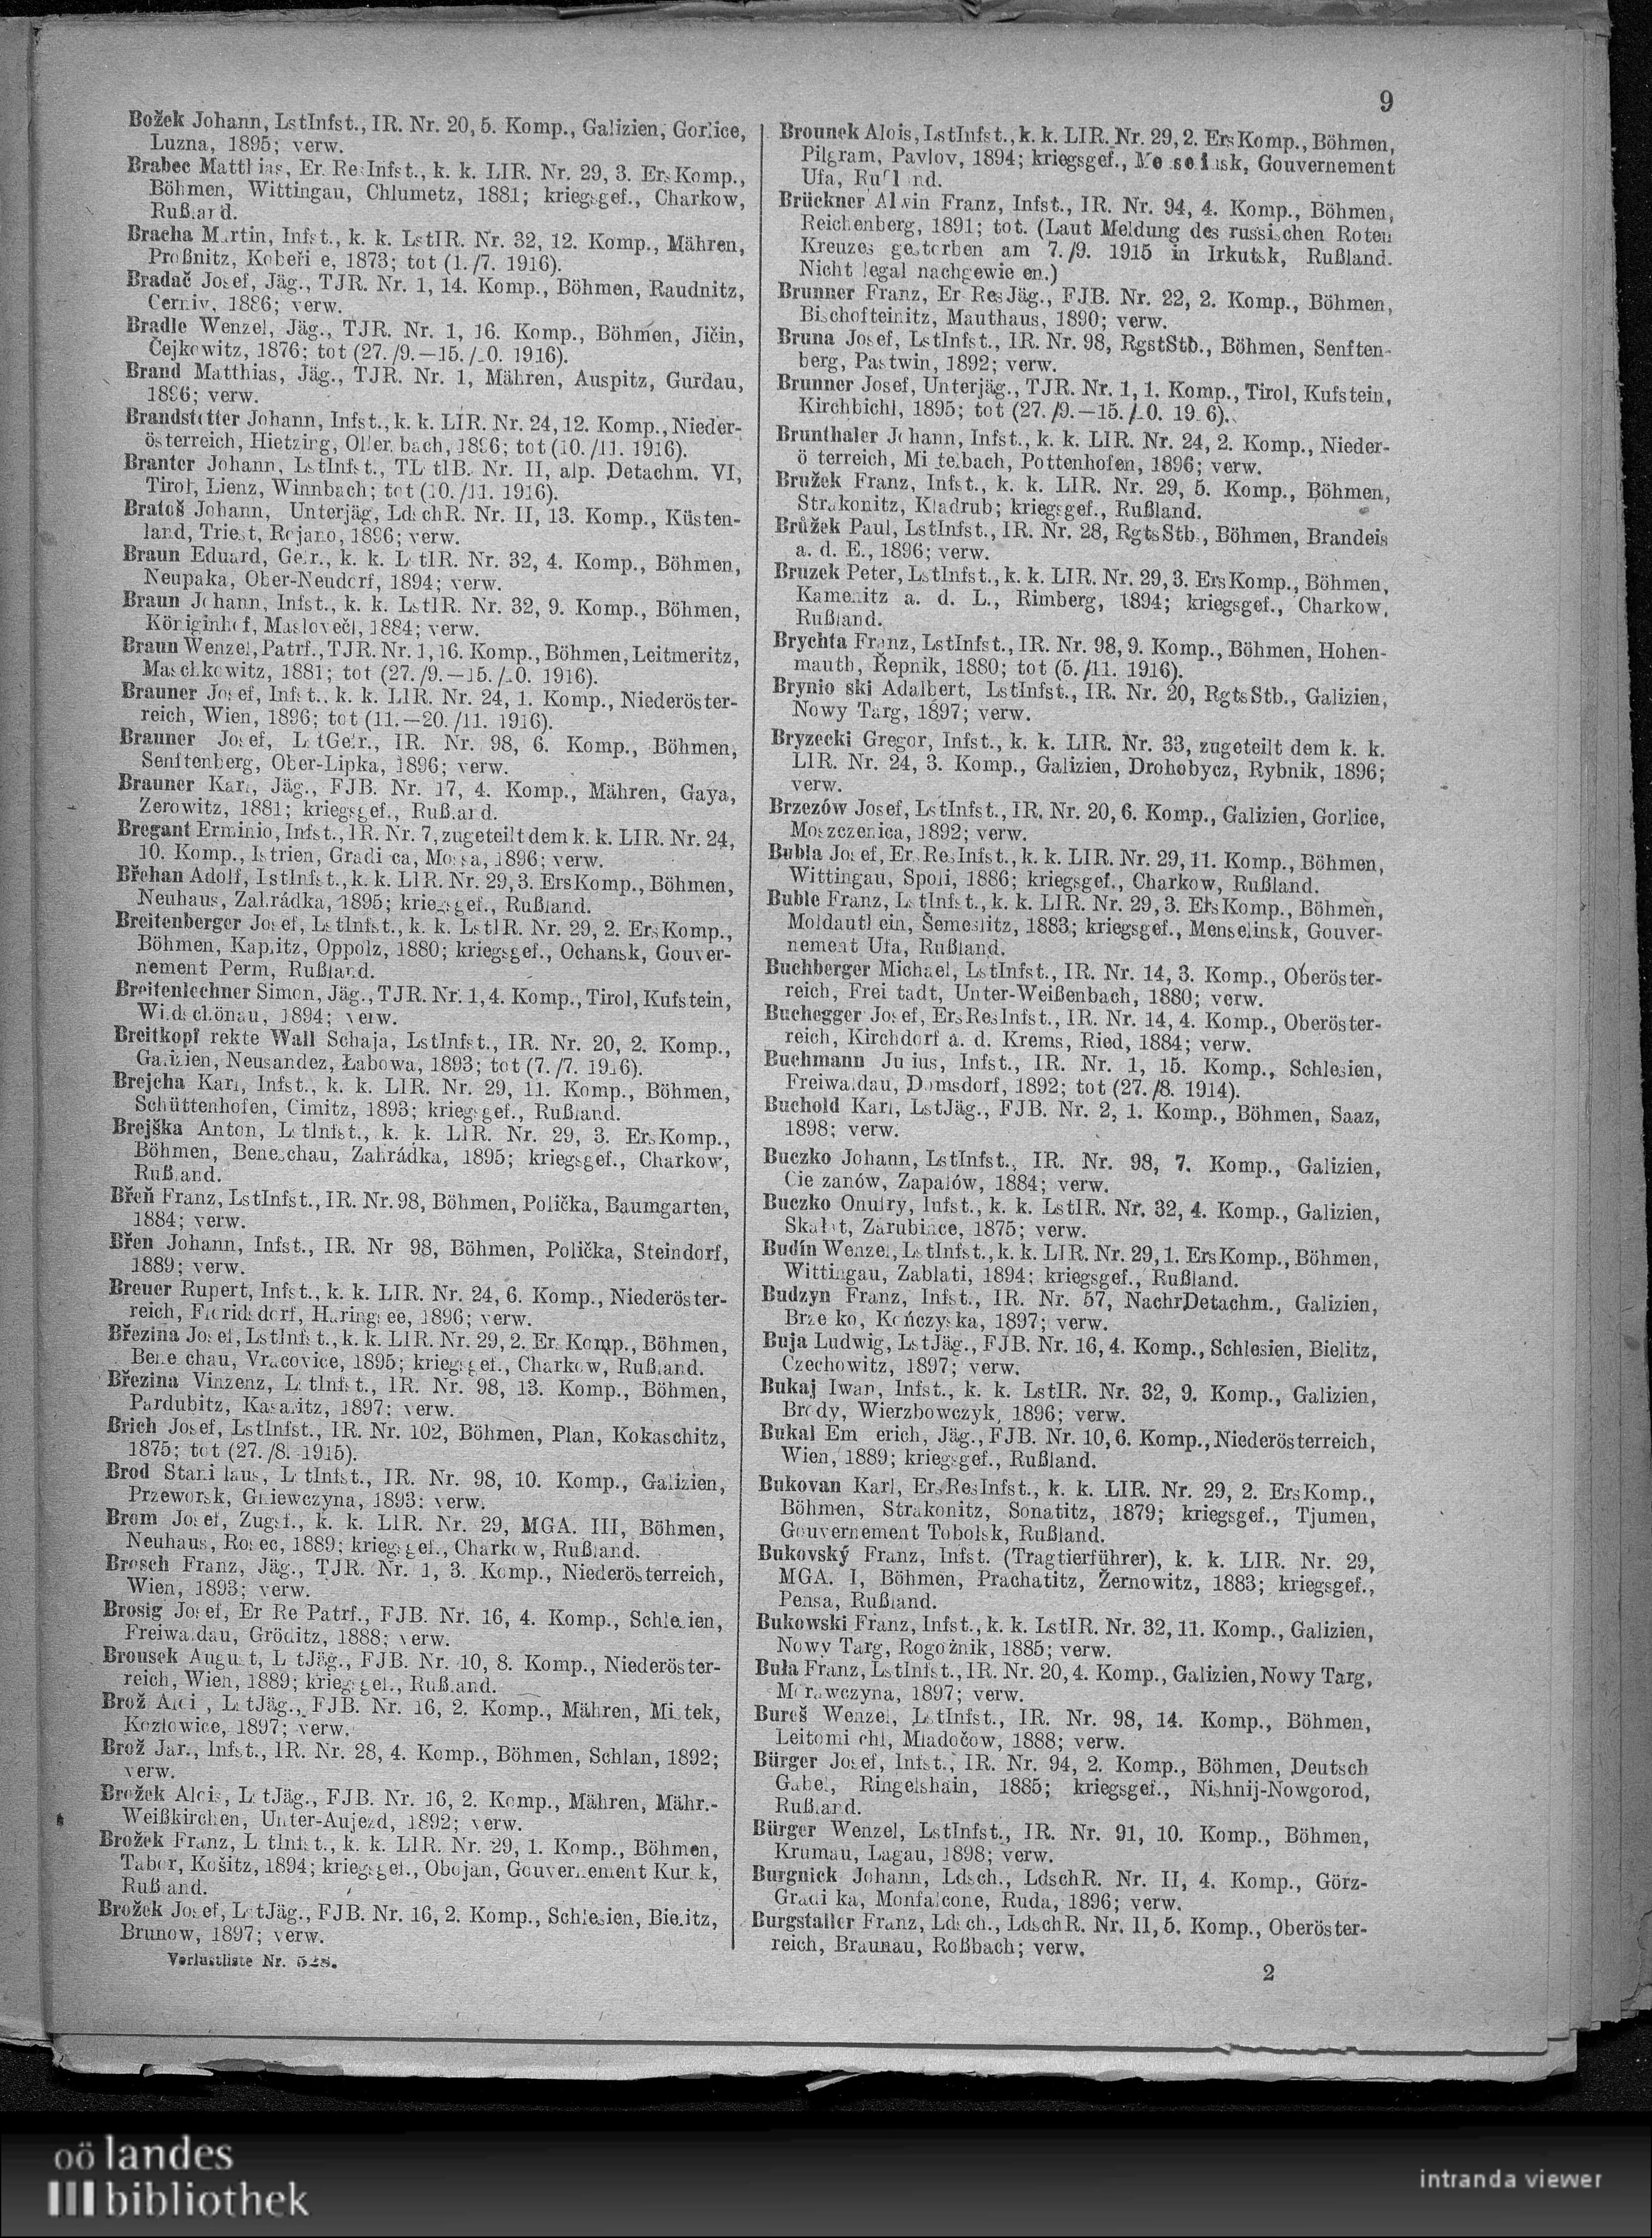 9
Božek Johann, LstInfst., IR. Nr. 20, 5. Komp., Galizien, Gorlice,
Luzna, 1895; verw.
Brabec Matthias, ErsResInfst., k. k. LIR. Nr. 29, 3. ErsKomp.,
Böhmen, Wittingau, Chlumetz, 1881; kriegsgef., Charkow,
Rußland.
Bracha Martin, Infst., k. k. LstIR. Nr. 32, 12. Komp., Mähren,
Proßnitz, Kobeři e, 1873; tot (1./7. 1916).
Bradač Josef, Jäg., TJR. Nr. 1, 14. Komp., Böhmen, Raudnitz,
Cerniv, 1886; verw.
Bradle Wenzel, Jäg., TJR. Nr. 1, 16. Komp., Böhmen, Jičin,
Čejkowitz, 1876; tot (27./9.—15./10. 1916).
Brand Matthias, Jäg., TJR. Nr. 1, Mähren, Auspitz, Gurdau,
1896; verw.
Brandstetter Johann, Infst., k. k. LIR. Nr. 24, 12. Komp., Nieder-
österreich, Hietzing, Ollersbach, 1896; tot (10./11. 1916).
Branter Johann, LstInfst., TLstIB. Nr. II, alp. Detachm. VI,
Tirol, Lienz, Winnbach; tot (10./11. 1916).
Bratoš Johann, Unterjäg, LdschR. Nr. II, 13. Komp., Küsten-
land, Triest, Rojano, 1896; verw.
Braun Eduard, Gefr., k. k. LstIR. Nr. 32, 4. Komp., Böhmen,
Neupaka, Ober-Neudorf, 1894; verw.
Braun Johann, Infst., k. k. LstIR. Nr. 32, 9. Komp., Böhmen,
Königinhof, Maslovečl, 1884; verw.
Braun Wenzel, Patrf., TJR. Nr. 1, 16. Komp., Böhmen, Leitmeritz,
Maschkowitz, 1881; tot (27./9.—15./10. 1916).
Brauner Josef, Infst., k. k. LIR. Nr. 24, 1. Komp., Niederöster-
reich, Wien, 1896; tot (11.—20./11. 1916).
Brauner Josef, LstGefr., IR. Nr. 98, 6. Komp., Böhmen,
Senftenberg, Ober-Lipka, 1896; verw.
Brauner Karl, Jäg., FJB. Nr. 17, 4. Komp., Mähren, Gaya,
Zerowitz, 1881; kriegsgef., Rußland.
Bregant Erminio, Infst., IR. Nr. 7, zugeteilt dem k. k. LIR. Nr. 24,
10. Komp., Istrien, Gradisca, Mossa, 1896; verw.
Břehan Adolf, LstInfst., k. k. LIR. Nr. 29, 3. ErsKomp., Böhmen,
Neuhaus, Zahrádka, 1895; kriegsgef., Rußland.
Breitenberger Josef, LstInfst., k. k. LstIR. Nr. 29, 2. ErsKomp.,
Böhmen, Kaplitz, Oppolz, 1880; kriegsgef., Ochansk, Gouver-
nement Perm, Rußland.
Breitenlechner Simon, Jäg., TJR. Nr. 1, 4. Komp., Tirol, Kufstein,
Wildschönau, 1894; verw.
Breitkopf rekte Wall Schaja, LstInfst., IR. Nr. 20, 2. Komp.,
Galizien, Neusandez, Łabowa, 1893; tot (7./7. 1916).
Brejcha Karl, Infst., k. k. LIR. Nr. 29, 11. Komp., Böhmen,
Schüttenhofen, Cimitz, 1893; kriegsgef., Rußland.
Brejška Anton, LstInfst., k. k. LIR. Nr. 29, 3. ErsKomp.,
Böhmen, Beneschau, Zahrádka, 1895; kriegsgef., Charkow,
Rußland.
Břeň Franz, LstInfst., IR. Nr. 98, Böhmen, Polička, Baumgarten,
1884; verw.
Břen Johann, Infst., IR. Nr 98, Böhmen, Polička, Steindorf,
1889; verw.
Breuer Rupert, Infst., k. k. LIR. Nr. 24, 6. Komp., Niederöster-
reich, Floridsdorf, Haringsee, 1896; verw.
Březina Josef, LstInfst., k. k. LIR. Nr. 29, 2. ErsKomp., Böhmen,
Beneschau, Vracovice, 1895; kriegsgef., Charkow, Rußland.
Březina Vinzenz, LstInfst., IR. Nr. 98, 13. Komp., Böhmen,
Pardubitz, Kasalitz, 1897; verw.
Brich Josef, LstInfst., IR. Nr. 102, Böhmen, Plan, Kokaschitz,
1875; tot (27./8. 1915).
Brod Stanislaus, LstInfst., IR. Nr. 98, 10. Komp., Galizien,
Przeworsk, Gniewczyna, 1893; verw.
Brom Josef, Zugsf., k. k. LIR. Nr. 29, MGA. III, Böhmen,
Neuhaus, Rosec, 1889; kriegsgef., Charkow, Rußland.
Brosch Franz, Jäg., TJR. Nr. 1, 3. Komp., Niederösterreich,
Wien, 1893; verw.
Brosig Josef, ErsResPatrf., FJB. Nr. 16, 4. Komp., Schlesien,
Freiwaldau, Gröditz, 1888; verw.
Brousek August, LstJäg., FJB. Nr. 10, 8. Komp., Niederöster-
reich, Wien, 1889; kriegsgef., Rußland.
Brož Alois, LstJäg., FJB. Nr. 16, 2. Komp., Mähren, Mistek,
Kozlowice, 1897; verw.
Brož Jar., Infst., IR. Nr. 28, 4. Komp., Böhmen, Schlan, 1892;
verw.
Brožek Alois, LstJäg., FJB. Nr. 16, 2. Komp., Mähren, Mähr.-
Weißkirchen, Unter-Aujezd, 1892; verw.
Brožek Franz, LstInfst., k. k. LIR. Nr. 29, 1. Komp., Böhmen,
Tabor, Košitz, 1894; kriegsgef., Obojan, Gouvernement Kursk,
Rußland.
Brožek Josef, LstJäg., FJB. Nr. 16, 2. Komp., Schlesien, Bielitz,
Brunow, 1897; verw.
Verlustliste Nr. 528.
Brounek Alois, LstInfst., k. k. LIR. Nr. 29, 2. ErsKomp., Böhmen,
Pilgram, Pavlov, 1894; kriegsgef., Gouvernement
Ufa, Rußland.
Brückner Alwin Franz, Infst., IR. Nr. 94, 4. Komp., Böhmen,
Reichenberg, 1891; tot. (Laut Meldung des russischen Roten
Kreuzes gestorben am 7./9. 1915 in Irkutsk, Rußland.
Nicht legal nachgewiesen.)
Brunner Franz, ErsResJäg., FJB. Nr. 22, 2. Komp., Böhmen,
Bischofteinitz, Mauthaus, 1890; verw.
Bruna Josef, LstInfst., IR. Nr. 98, RgstStb., Böhmen, Senften-
berg, Pastwin, 1892; verw.
Brunner Josef, Unterjäg., TJR. Nr. 1, 1. Komp., Tirol, Kufstein,
Kirchbichl, 1895; tot (27./9.—15./10. 1916).
Brunthaler Johann, Infst., k. k. LIR. Nr. 24, 2. Komp., Nieder-
österreich, Mistelbach, Pottenhofen, 1896; verw.
Bružek Franz, Infst., k. k. LIR. Nr. 29, 5. Komp., Böhmen,
Strakonitz, Kladrub; kriegsgef., Rußland.
Brůžek Paul, LstInfst., IR. Nr. 28, RgtsStb., Böhmen, Brandeis
a. d. E., 1896; verw.
Bruzek Peter, LstInfst., k. k. LIR. Nr. 29, 3. ErsKomp., Böhmen,
Kamenitz a. d. L., Rimberg, 1894; kriegsgef., Charkow,
Rußland.
Brychta Franz, LstInfst., IR. Nr. 98, 9. Komp., Böhmen, Hohen-
mauth, Řepnik, 1880; tot (5./11. 1916).
Brynio ski Adalbert, LstInfst., IR. Nr. 20, RgtsStb., Galizien,
Nowy Targ, 1897; verw.
Bryzecki Gregor, Infst., k. k. LIR. Nr. 33, zugeteilt dem k. k.
LIR. Nr. 24, 3. Komp., Galizien, Drohobycz, Rybnik, 1896;
verw.
Brzezów Josef, LstInfst., IR. Nr. 20, 6. Komp., Galizien, Gorlice,
Moszczenica, 1892; verw.
Bubla Josef, ErsResInfst., k. k. LIR. Nr. 29, 11. Komp., Böhmen,
Wittingau, Spoli, 1886; kriegsgef., Charkow, Rußland.
Buble Franz, LstInfst., k. k. LIR. Nr. 29, 3. ErsKomp., Böhmen,
Moldauthein, Šemeslitz, 1883; kriegsgef., Menselinsk, Gouver-
nement Ufa, Rußland.
Buchberger Michael, LstInfst., IR. Nr. 14, 3. Komp., Oberöster-
reich, Freistadt, Unter-Weißenbach, 1880; verw.
Buchegger Josef, ErsResInfst., IR. Nr. 14, 4. Komp., Oberöster-
reich, Kirchdorf a. d. Krems, Ried, 1884; verw.
Buchmann Julius, Infst., IR. Nr. 1, 15. Komp., Schlesien,
Freiwaldau, Domsdorf, 1892; tot (27./8. 1914).
Buchold Karl, LstJäg., FJB. Nr. 2, 1. Komp., Böhmen, Saaz,
1898; verw.
Buczko Johann, LstInfst., IR. Nr. 98, 7. Komp., Galizien,
Cieszanów, Zapałów, 1884; verw.
Buczko Onufry, Infst., k. k. LstIR. Nr. 32, 4. Komp., Galizien,
Skałat, Zarubince, 1875; verw.
Budín Wenzel, LstInfst., k. k. LIR. Nr. 29, 1. ErsKomp., Böhmen,
Wittingau, Zablati, 1894; kriegsgef., Rußland.
Budzyn Franz, Infst., IR. Nr. 57, NachrDetachm., Galizien,
Brzesko, Kończyska, 1897; verw.
Buja Ludwig, LstJäg., FJB. Nr. 16, 4. Komp., Schlesien, Bielitz,
Czechowitz, 1897; verw.
Bukaj Iwan, Infst., k. k. LstIR. Nr. 32, 9. Komp., Galizien,
Brody, Wierzbowczyk, 1896; verw.
Bukal Emerich, Jäg., FJB. Nr. 10, 6. Komp., Niederösterreich,
Wien, 1889; kriegsgef., Rußland.
Bukovan Karl, ErsResInfst., k. k. LIR. Nr. 29, 2. ErsKomp.,
Böhmen, Strakonitz, Sonatitz, 1879; kriegsgef., Tjumen,
Gouvernement Tobolsk, Rußland.
Bukovský Franz, Infst. (Tragtierführer), k. k. LIR. Nr. 29,
MGA. I, Böhmen, Prachatitz, Žernowitz, 1883; kriegsgef.,
Pensa, Rußland.
Bukowski Franz, Infst., k. k. LstIR. Nr. 32, 11. Komp., Galizien,
Nowy Targ, Rogoźnik, 1885; verw.
Buła Franz, LstInfst., IR. Nr. 20, 4. Komp., Galizien, Nowy Targ,
Morawczyna, 1897; verw.
Bureš Wenzel, LstInfst., IR. Nr. 98, 14. Komp., Böhmen,
Leitomischl, Mladočow, 1888; verw.
Bürger Josef, Infst., IR. Nr. 94, 2. Komp., Böhmen, Deutsch
Gabel, Ringelshain, 1885; kriegsgef., Nishnij-Nowgorod,
Rußland.
Bürger Wenzel, LstInfst., IR. Nr. 91, 10. Komp., Böhmen,
Krumau, Lagau, 1898; verw.
Burgnick Johann, Ldsch., LdschR. Nr. II, 4. Komp., Görz-
Gradiska, Monfalcone, Ruda, 1896; verw.
Burgstaller Franz, Ldsch., LdschR. Nr. II, 5. Komp., Oberöster-
reich, Braunau, Roßbach; verw.
2
oö landes
bibliothek
intranda viewer